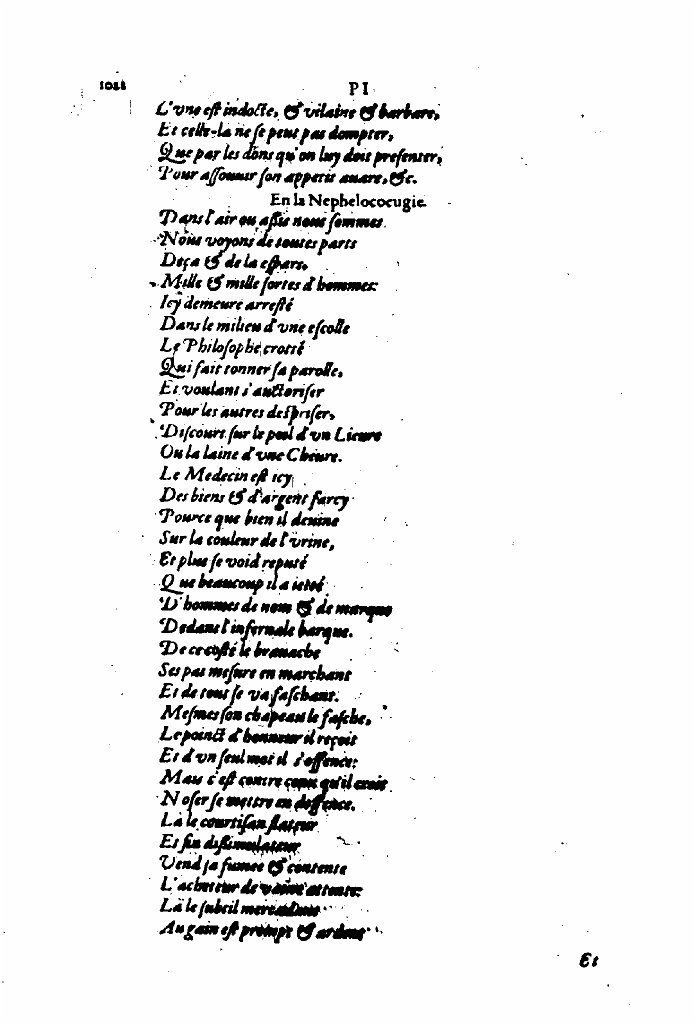 1022
PI
L'vne est indocte, & vilaine & barbare,
Et celle-la ne se peut pas dompter,
Que par les dons qu'on luy doit presenter,
Pour assouuir son appetit auare, &c.
En la Nephelococugie.
Dans l'air ou assis nous sommes
Nous voyons de toutes parts
Deça & de la espars,
Mille & mille sortes d'hommes:
Icy demeure arresté
Dans le milieu d'vne escolle
Le Philosophe crotté
Qui fait tonner sa parolle,
Et voulant s'auctoriser
Pour les autres despriser,
Discourt sur le poil d'vn Lieure
Ou la laine d'vne Cheure.
Le Medecin est icy
Des biens & d'argent farcy
Pource que bien il deuine
Sur la couleur de l'vrine,
Et plus se void reputé
Que beaucoup il a ietté
D'hommes de nom & de marque
Dedans l'infernale barque.
De ce costé le brauache
Ses pas mesure en marchant
Et de tout se va faschant.
Mesmes son chapeau le fasche,
Le poinct d'honneur il reçoit
Et d'vn seul mot il s'offence:
Mais c'est contre ceux qu'il croit
N'oser se mettre en deffence.
Là le courtisan flateur
Et fin dissimulateur
Vend sa fumee & contente
L'acheteur de vaine attente:
Là le subtil
Au gain est prompt & ardent
Et